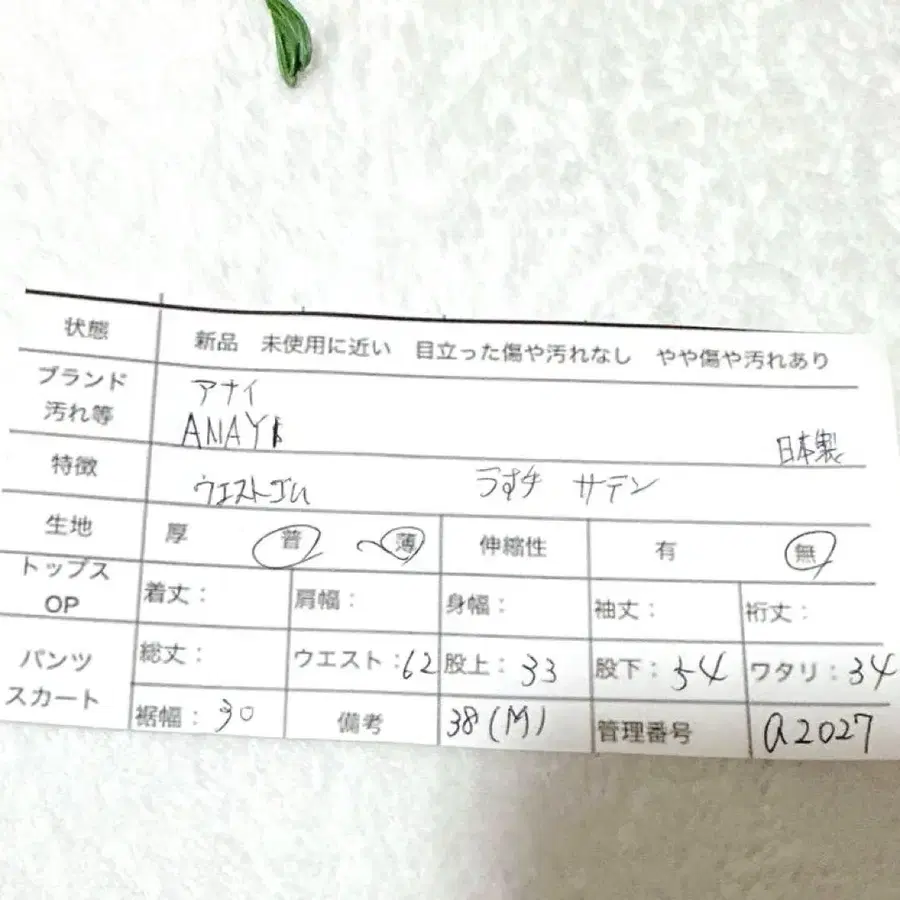 状態 新品 未使用に近い 目立った傷や汚れなし やや傷や汚れあり
ブランド アナイ
汚れ等 ANAYI 日本製
特徴 ウエストゴム うす手 サテン
生地 厚 普 〜薄 伸縮性 有 無
トップス OP 着丈: 肩幅: 身幅: 袖丈: 裄丈:
パンツ スカート 総丈: ウエスト:62 股上:33 股下:54 ワタリ:34
裾幅:30 備考 38(M) 管理番号 a2027